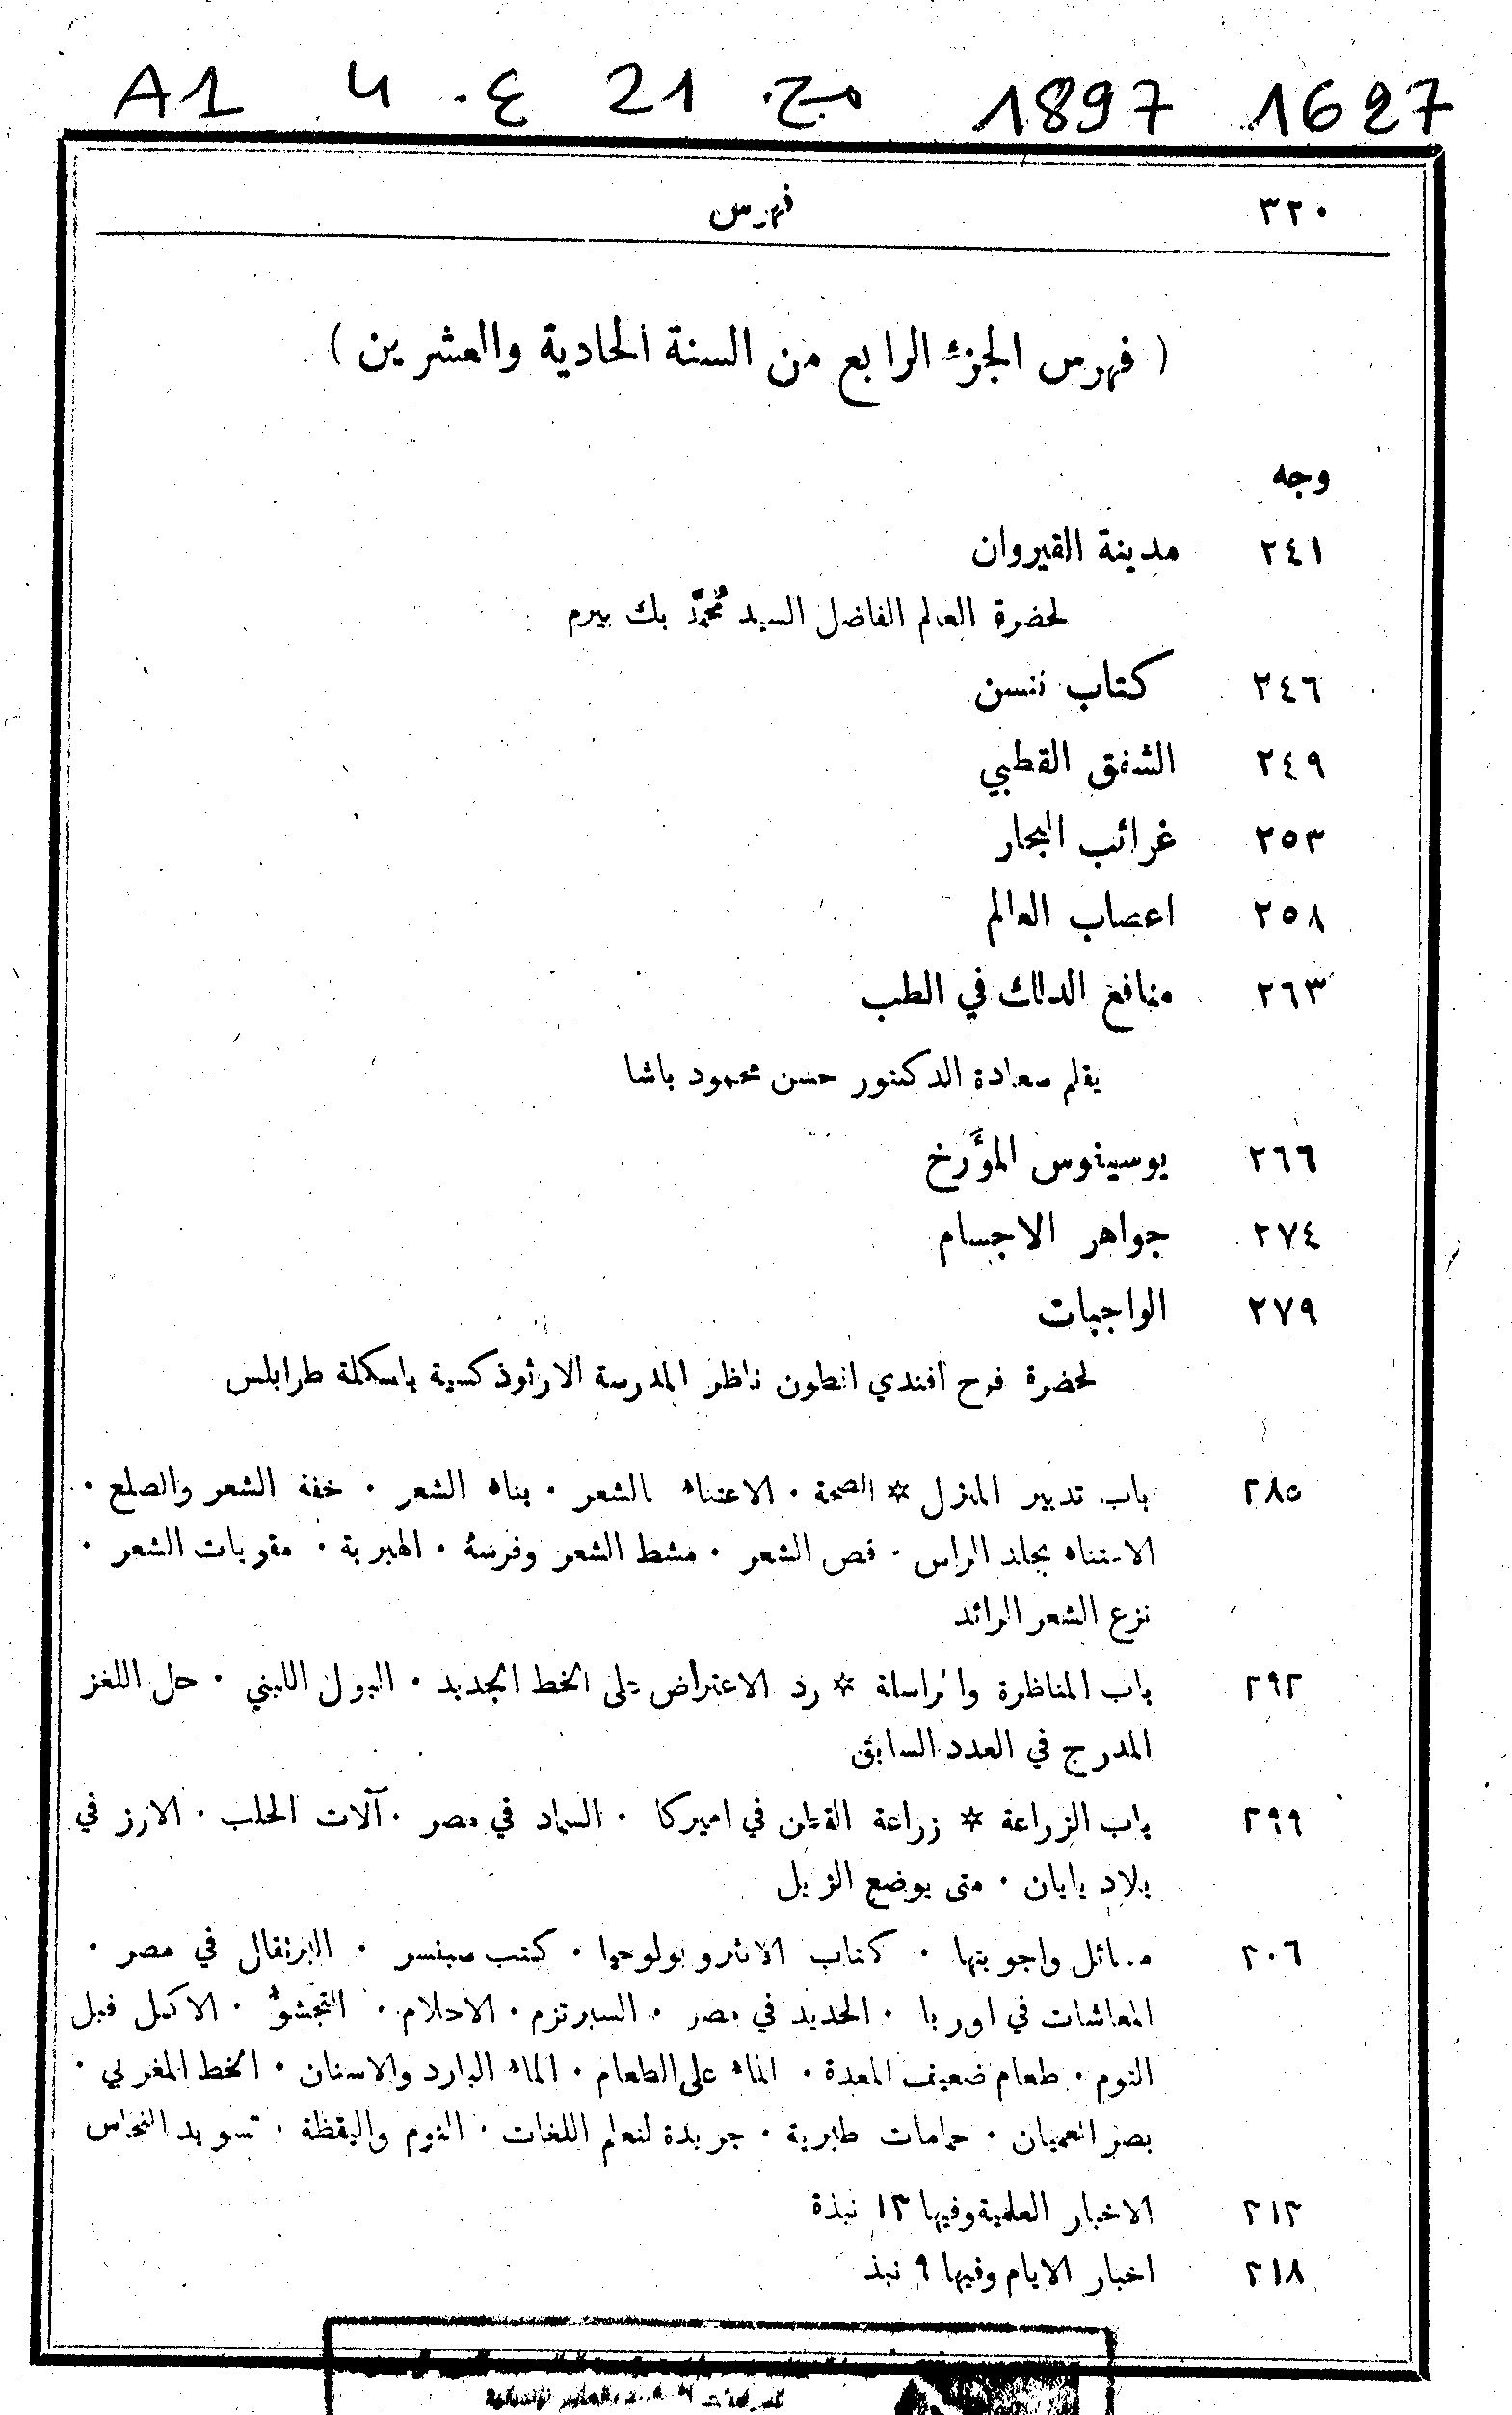 A1 4 ع. 21 مج. 1897 1627
٣٢٠ فهرس
( فهرس الجزء الرابع من السنة الحادية والعشرين )
وجه
٢٤١ مدينة القيروان
لحضرة العالم الفاضل السيد مُحمَّد بك بيرم
٢٤٦ كتاب ننسن
٢٤٩ الشفق القطبي
٢٥٣ غرائب البحار
٢٥٨ اعصاب العالم
٢٦٣ منافع الدلك في الطب
بقلم سعادة الدكتور حسن محمود باشا
٢٦٦ يوسيفوس المؤَرخ
٢٧٤ جواهر الاجسام
٢٧٩ الواجبات
لحضرة فرح افندي انطون ناظر المدرسة الارثوذكسية باسكلة طرابلس
٢٨٥ باب تدبير المنزل * الصحة ٠ الاعتناء بالشعر ٠ بناء الشعر ٠ خفة الشعر والصلع ٠
الاعتناء بجلد الراس ٠ قص الشعر ٠ مشط الشعر وفرشهُ ٠ الهبرية ٠ مقويات الشعر ٠
نزع الشعر الزائد
٢٩٢ باب المناظرة والمراسلة * رد الاعتراض على الخط الجديد ٠ البول اللبني ٠ حل اللغز
المدرج في العدد السابق
٢٩٩ باب الزراعة * زراعة القطن في اميركا ٠ السماد في مصر ٠ آلات الحلب ٠ الارز في
بلاد يابان ٠ متى يوضع الزبل
٣٠٦ مسائل واجوبتها ٠ كتاب الانثروبولوجيا ٠ كتب سبنسر ٠ البرتقال في مصر ٠
المعاشات في اوربا ٠ الحديد في مصر ٠ السبرتزم ٠ الاحلام ٠ التجشوُّ ٠ الاكل قبل
النوم ٠ طعام ضعيف المعدة ٠ الماء على الطعام ٠ الماء البارد والاسنان ٠ الخط المغربي ٠
بصر العميان ٠ حمامات طبرية ٠ جريدة لتعلم اللغات ٠ النوم واليقظة ٠ تسويد النحاس
٣١٣ الاخبار العلمية وفيها ١٣ نبذة
٣١٨ اخبار الايام وفيها ٩ نبذ